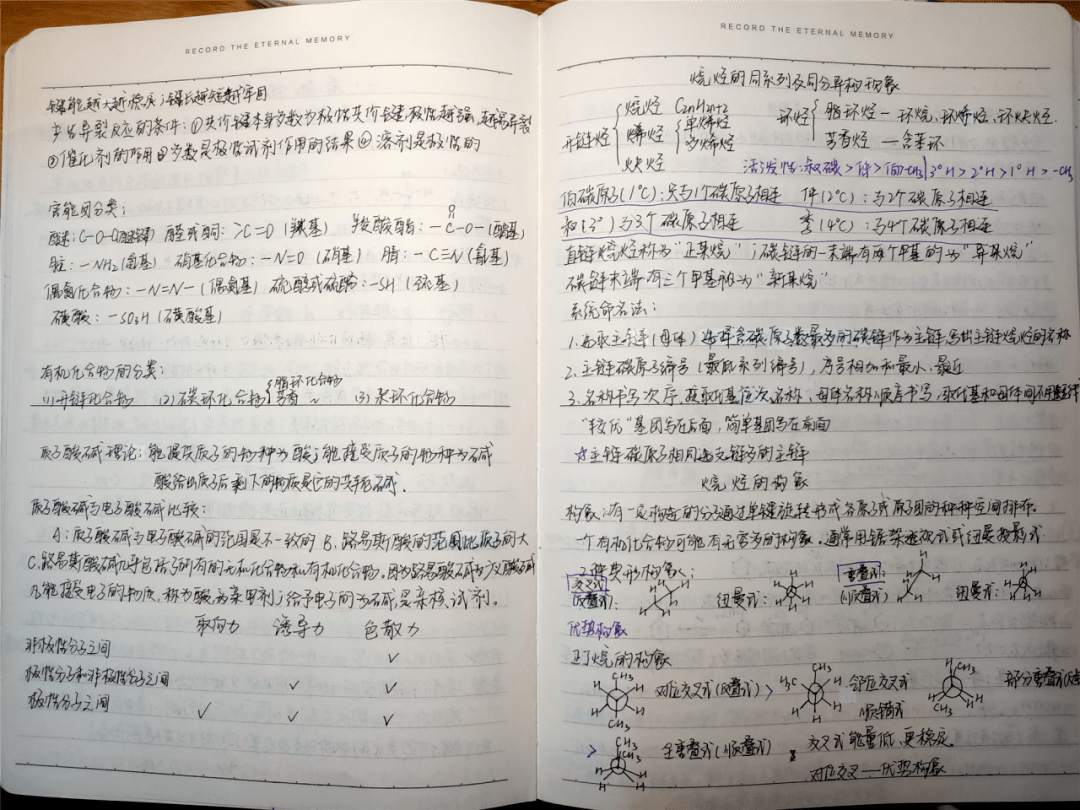 RECORD THE ETERNAL MEMORY
键能越大越稳定;键长越短越牢固
发生异裂反应的条件:①共价键本身多数为极性共价键,极性越强,越易异裂
②催化剂的作用 ③多数是极性试剂作用的结果 ④溶剂是极性的
官能团分类:
醚:C-O-C(醚键) 醛或酮:>C=O (羰基) 羧酸酯:-C-O-(酯基)
O
胺:-NH₂(氨基) 硝基化合物:-N=O (硝基) 腈:-C≡N(氰基)
偶氮化合物:-N=N-(偶氮基) 硫醇或硫酚:-SH (巯基)
磺酸:-SO₃H (磺酸基)
有机化合物的分类:
(1)开链化合物 (2)碳环化合物{脂环化合物 芳香 〃 (3)杂环化合物
质子酸碱理论:能提供质子的物种为酸;能接受质子的物种为碱
酸给出质子后剩下的物质是它的共轭碱.
质子酸碱与电子酸碱比较:
A:质子酸碱与电子酸碱的范围是不一致的 B.路易斯酸的范围比质子的大
C.路易斯酸碱几乎包括了所有的无机化合物和有机化合物。
凡能接受电子的物质,称为酸,为亲电剂;给予电子的为碱,是亲核试剂。
取向力 诱导力 色散力
非极性分子之间 ✓
极性分子和非极性分子之间 ✓ ✓
极性分子之间 ✓ ✓ ✓
RECORD THE ETERNAL MEMORY
烷烃的同系列及同分异构现象
开链烃{烷烃 CnH2n+2 环烃{脂环烃—环烷,环烯烃,环炔烃.
烯烃{单烯烃 多烯烃 芳香烃—含苯环
炔烃
活泼性:叔碳>仲>伯-CH₃|3°H>2°H>1°H>-CH₃
伯碳原子(1°C):只与1个碳原子相连 仲(2°C):与2个碳原子相连
叔(3°)与3个碳原子相连 季(4°C):与4个碳原子相连
直链烷烃称为"正某烷";碳链的一末端有两个甲基的为"异某烷"
碳链末端有三个甲基称为"新某烷"
系统命名法:
1.选取主链(母体)选择含碳原子数最多的碳链作为主链,写出主链烷烃的名称
2.主链碳原子编号(最低系列编号),序号相加和最小、最近
3.名称书写次序,按取代基位次、名称、母体名称顺序书写,取代基和母体间不用短线
"较优"基团写在后面,简单基团写在前面
☆主链碳原子相同选支链多的主链
烷烃的构象
构象:有一定构造的分子通过单键旋转形成各原子或原子团的种种空间排布
一个有机化合物可能有无穷多的构象。通常用锯架透视式或纽曼投影式
乙烷典形构象:
交叉式 (反叠式): 纽曼式: H H H H H H
重叠式: (顺叠式) 纽曼式: H H H H H H
优势构象
正丁烷的构象
CH₃ H H H H CH₃ 对位交叉式(反叠式)> H₃C CH₃ H H H H 邻位交叉式
顺错式
CH₃ H H H 部分重叠式
> CH₃ CH₃ H H H H 全重叠式(顺叠式) 交叉式能量低,更稳定。
对位交叉——优势构象